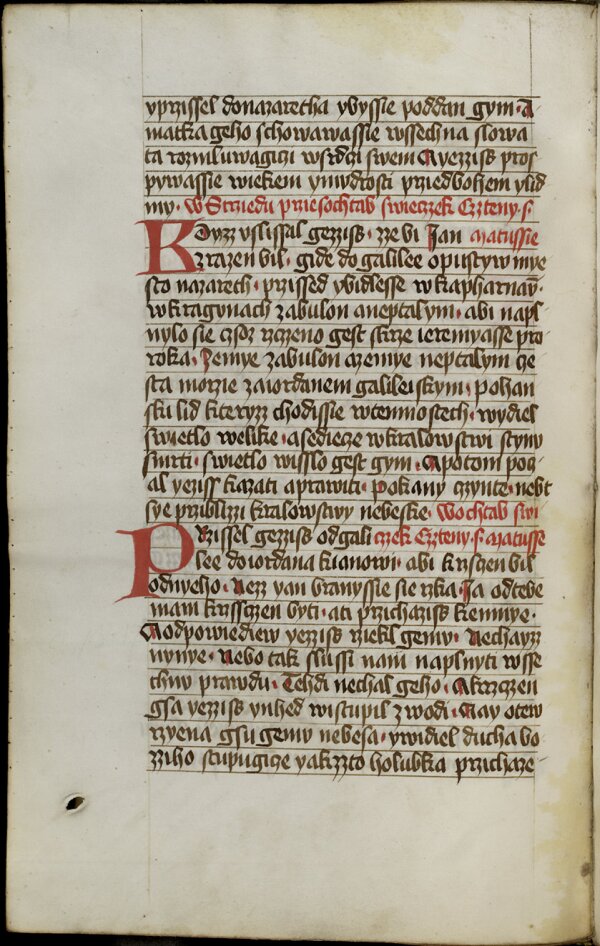 yprzissel donazaretha ybyssie poddan gym · A
matka geho schowawassie wssechna slowa
ta rozmluwagiczi wsrdczi swem Ayezziss pros
pywassie wiekem ymudrosti przied bohem ylid
my · W Strziedu przies ochtab swieczek Czteny · s ·
Kdyzz uslissal gezziss · zze bi Jan Matussie
zrazen bil · gide do galilee opustyw mye
sto nazareth · przissed ybidlesse w kapharnau̅
w kragynach zabulon a neptalym · abi napl
nylo sie czsoz rzczeno gest skrze ieremyasse pro
roka · Zemye zabulon a zemye neptalym cze
sta morzie za iordanem galileiskym · pohan
sku lid kteryzz chodissie w temnostech · wydiel
swietlo welike · a sedicze w kralowstwi stynu
smrti · swietlo wisslo gest gym · A potom pocz
al yeziss kazati a prawiti · Pokany czynte · nebt
sye prziblizi kralowstwy nebeske · Wochtab swi
Przissel gezziss od gali czek Czteny · s · Matusse
lee do iordana k ianowi · abi krzsczen bil
od nyeho · Nezz yan branyssie sie rzka · Ja od tebe
mam krzssczen byti · a ti przichaziss kemnye ·
A odpowiediew yezziss rziekl gemu · Nechayzz
nynye · Nebo tak slussi nam naplnyti wsse
chnu prawdu · Tehdi nechal geho · A krzczen
gsa yezziss ynhed wistupil z wodi · A ay otew
rzyena gsu gemu nebesa · ywidiel ducha bo
zziho stupugicze yakzzto holubka przichaze